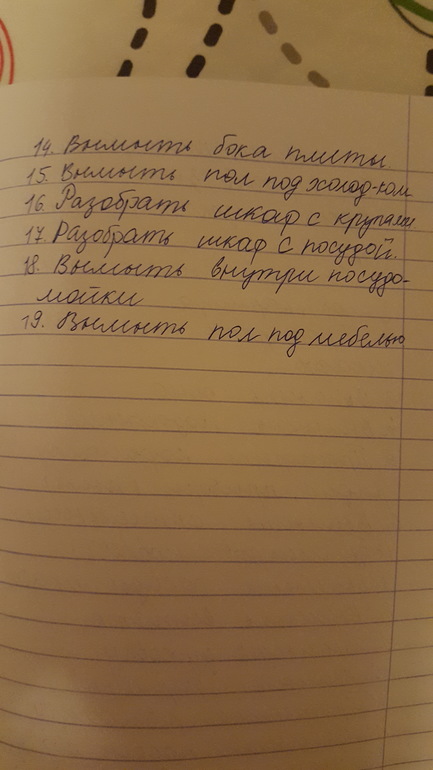 14. Вымыть бока плиты
15. Вымыть пол под холод-ом
16. Разобрать шкаф с крупами
17. Разобрать шкаф с посудой.
18. Вымыть внутри посудо-
мойки
19. Вымыть пол под мебелью